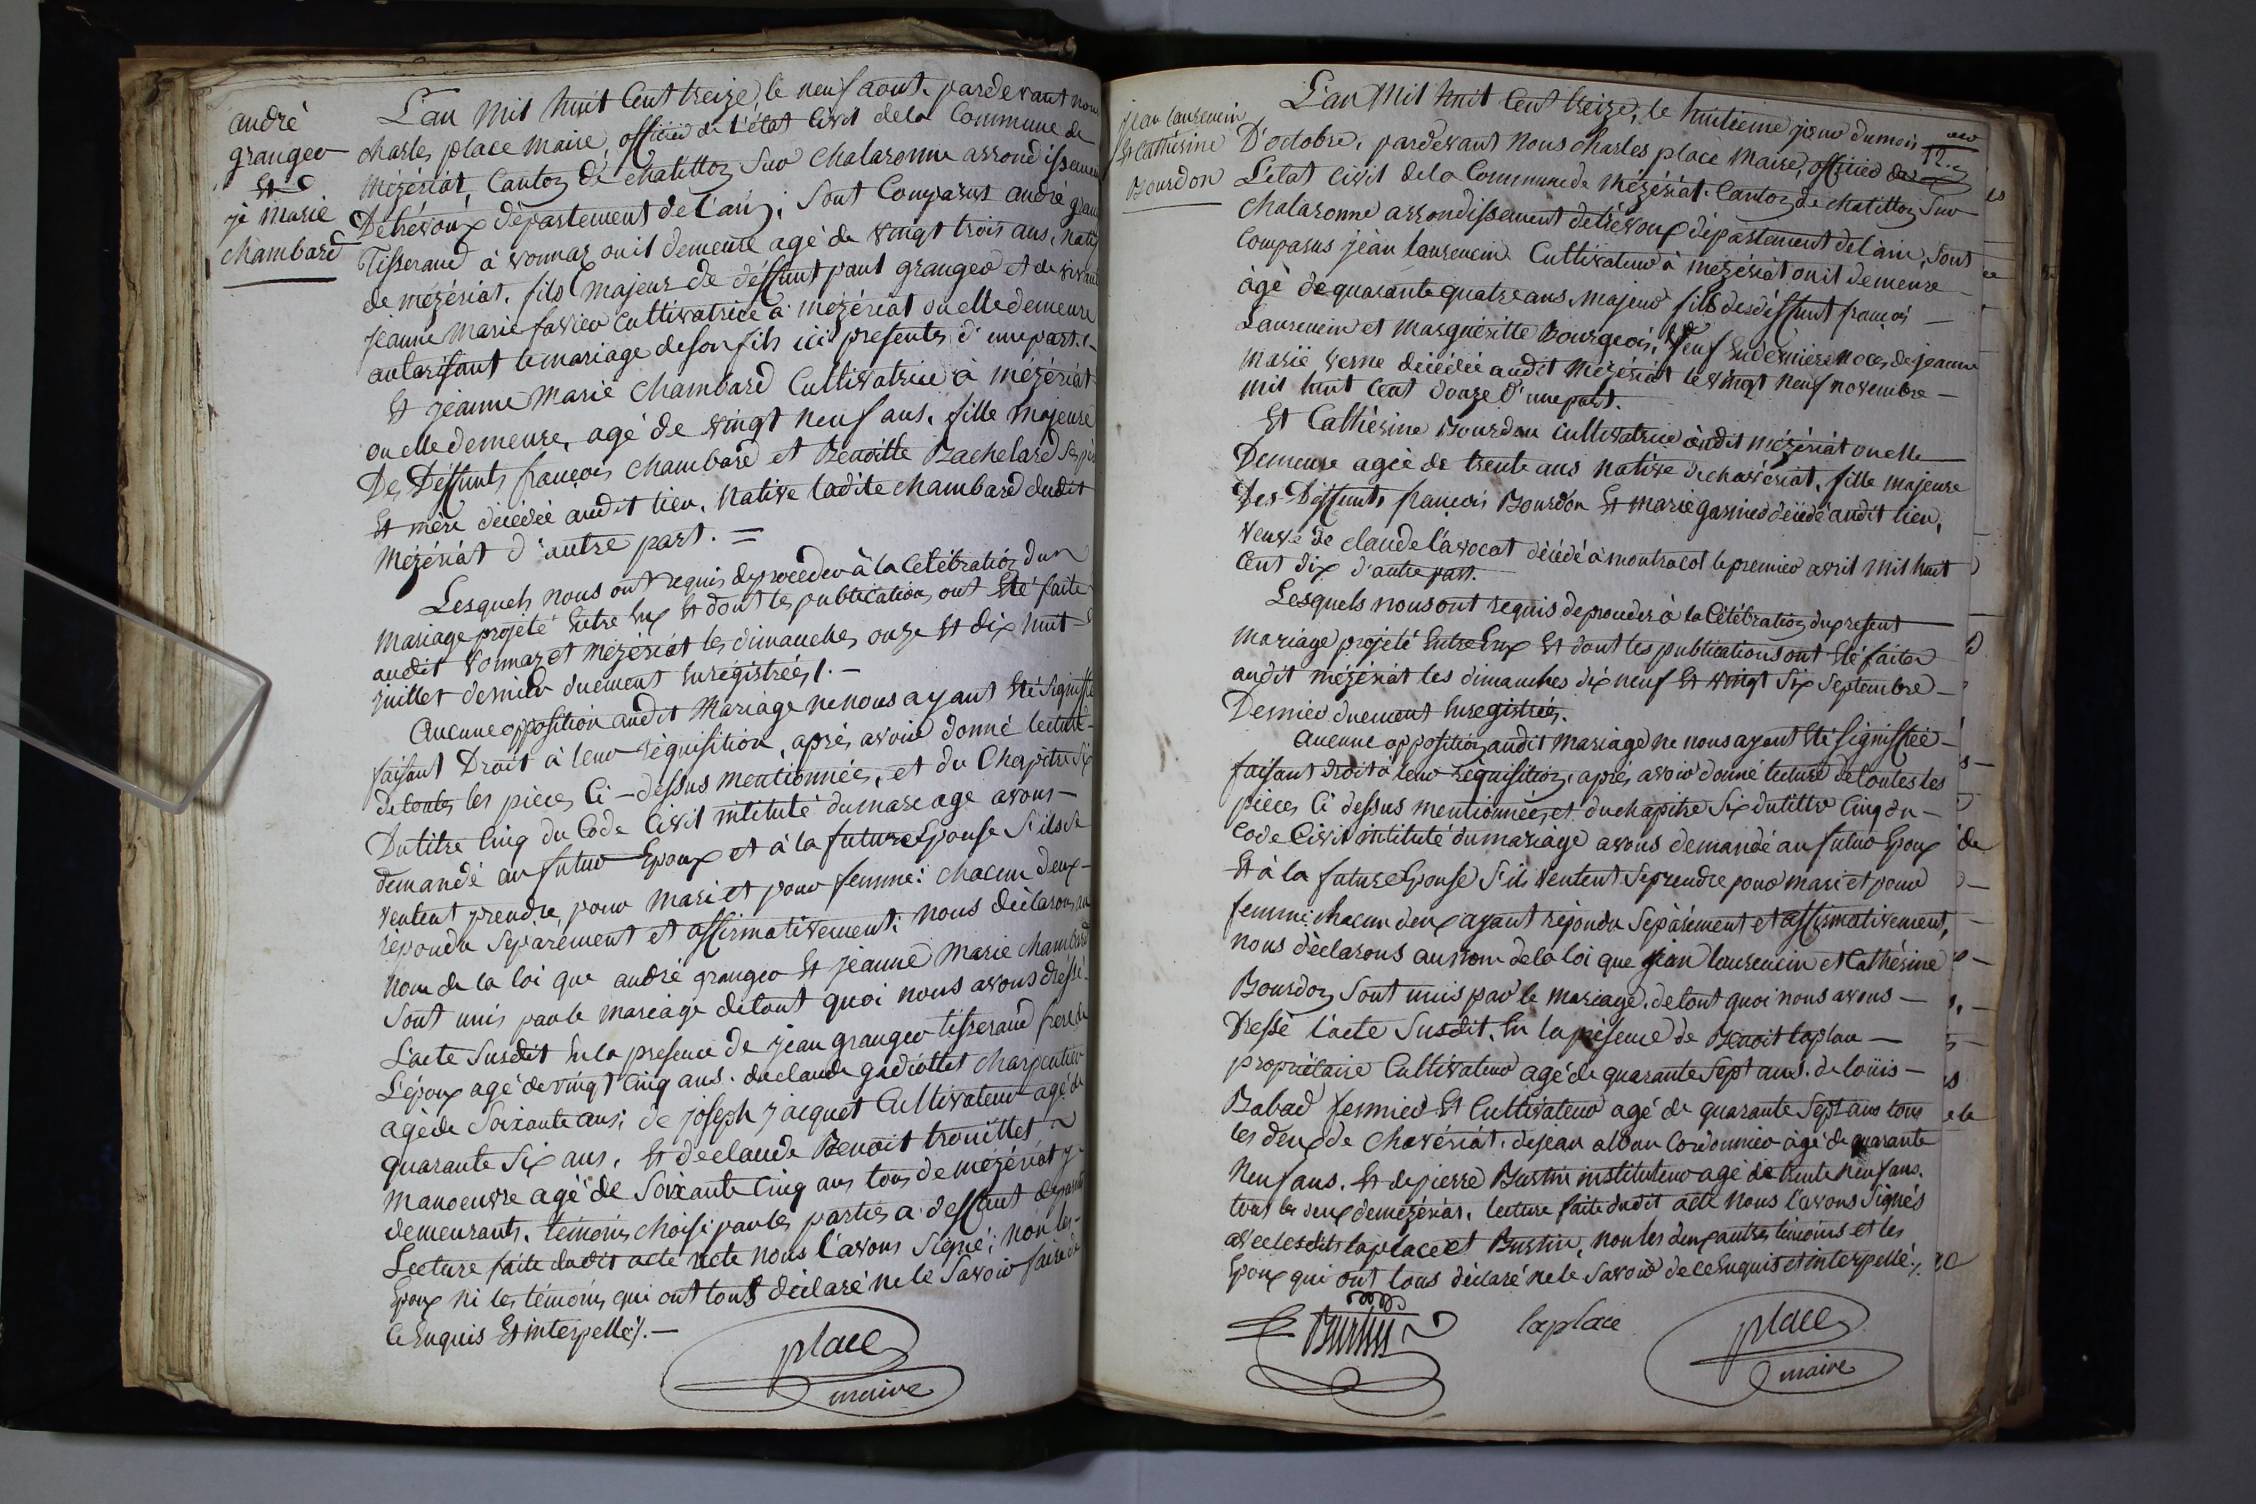 andré
granger
Et
je Marie
chambard
L'an Mil huit Cent treize, le neuf aout. pardevant nou
charles place maire, officier de L'état Civil dela Commune de
Mézériat, Canton de chatillon Sur Chalaronne arrondissemen
De trévoux département de l'ain, Sont Comparus andré gran
Tisserand à vonnaz ou il demeure agé de vingt trois ans, natif
de mézériat, fils majeur de deffunt paul granger et de vivan
jeanne Marie favier Cultivatrice à mézériat ou elle demeure
autorisant le mariage de son fils ici présente, d'une part.
Et jeanne Marie Chambard Cultivatrice à mézériat
ou elle demeure, agé de vingt neuf ans, fille Majeure
Des Deffunts françois chambard et Benoitte Bachelard Ses pè
Et mère décédée audit lieu, Native ladite chambard dudit
Mézériat d'autre part. =
Lesquels nous ont requis de procéder à la Célébration du
Mariage projeté Entre Eux Et dont les publications ont Eté faite
audit vonnaz et Mézériat les dimanches onze Et dix huit
juillet dernier duement Enregistrées /. —
Aucune opposition audit Mariage ne nous ayant Eté signiffé
faisant Droit à leur réquisition, après avoir donné lecture
de toutes les pièces Ci-dessus mentionnées, et du Chapitre Six
Du titre Cinq du Code Civil intitulé du mariage avons —
demandé au futur Epoux et à la future Epouse S'ils se
veulent prendre pour Mari et pour femme: chacun deux —
répondu Séparément et affirmativement: nous déclarons au
nom de la loi que andré granger Et jeanne Marie chambard
Sont unis par le mariage de tout quoi nous avons dressé
L'acte Susdit En la présence de jean granger tisserand frere de
L'époux agé de vingt Cinq ans. de claude gadiollet charpentier
agé de Soixante ans; de joseph jacquet Cultivateur agé de
quarante Six ans, Et de claude Benoit trouillet
Manoeuvre agé de Soixante Cinq ans tous de mézériat y
demeurants, témoins choisi par les parties a deffaut de parents
Lecture faite dudit acte acte nous l'avons Signé; non les
Epoux ni les témoins qui ont tous déclaré ne le Savoir faire de
Ce Enquis Et interpellé /. —
place
maire
jean laurencin
Et Cathérine
Bourdon
L'an Mil huit Cent treize, le huitieme jour du mois
D'octobre, pardevant Nous charles place Maire, officier de
L'état Civil dela Commune de Mézériat. Canton de chatillon Sur
Chalaronne arrondissement de trévoux département de l'ain, Sont
Comparus jean laurencin Cultivateur à mézériat ou il demeure
âgé de quarante quatre ans, Majeur fils des deffunt françois —
Laurencin et Marguéritte Bourgeois, Veuf En dernière Noces, de jeanne
Marie verne décédée audit Mézériat le vingt neuf novembre —
mil huit Cent douze d'une part.
Et Cathérine Bourdon cultivatrice audit mézériat ou elle
Demeure agée de trente ans native de chavériat, fille majeure
Des Deffunts françois Bourdon Et Marie garnier décédé audit lieu,
veuve de claude lavocat décédé à montracol le premier avril mil huit
Cent dix d'autre part.
Lesquels nous ont requis de procéder à la Célébration du présent
Mariage projeté Entre Eux Et dont les publications ont Eté faites
audit mézériat les dimanches dix neuf Et vingt Six Septembre —
Dernier duement Enregistrées.
Aucune opposition audit mariage ne nous ayant Eté signiffiée —
faisant droit à leur réquisition, après avoir donné lecture de toutes les
pièces Ci dessus mentionnées, et du chapitre Six du titre Cinq du —
Code Civil intitulé du mariage avons demandé au futur Epoux
Et à la future Epouse S'ils veulent Se prendre pour mari et pour
femme: chacun deux ayant répondu Séparément et affirmativement,
nous déclarons au nom de la loi que jean laurencin et Cathérine
Bourdon Sont unis par le mariage. de tout quoi nous avons —
Dressé l'acte Susdit. En la présence de Benoit laplace —
propriétaire Cultivateur agé de quarante Sept ans. de loüis —
Babad fermier Et Cultivateur agé de quarante Sept ans tous
les deux de Chavériat. de jean alban Cordonnier agé de quarante
Neuf ans. Et de pierre Burtin instituteur agé de trente Neuf ans.
tous les deux de mézériat, lecture faite dudit acte Nous l'avons Signés
avec les dits laplace et Burtin, non les deux autres témoins et les
Epoux qui ont tous déclaré ne le Savoir de ce Enquis et interpellé /.
Burtin
laplace
place
maire